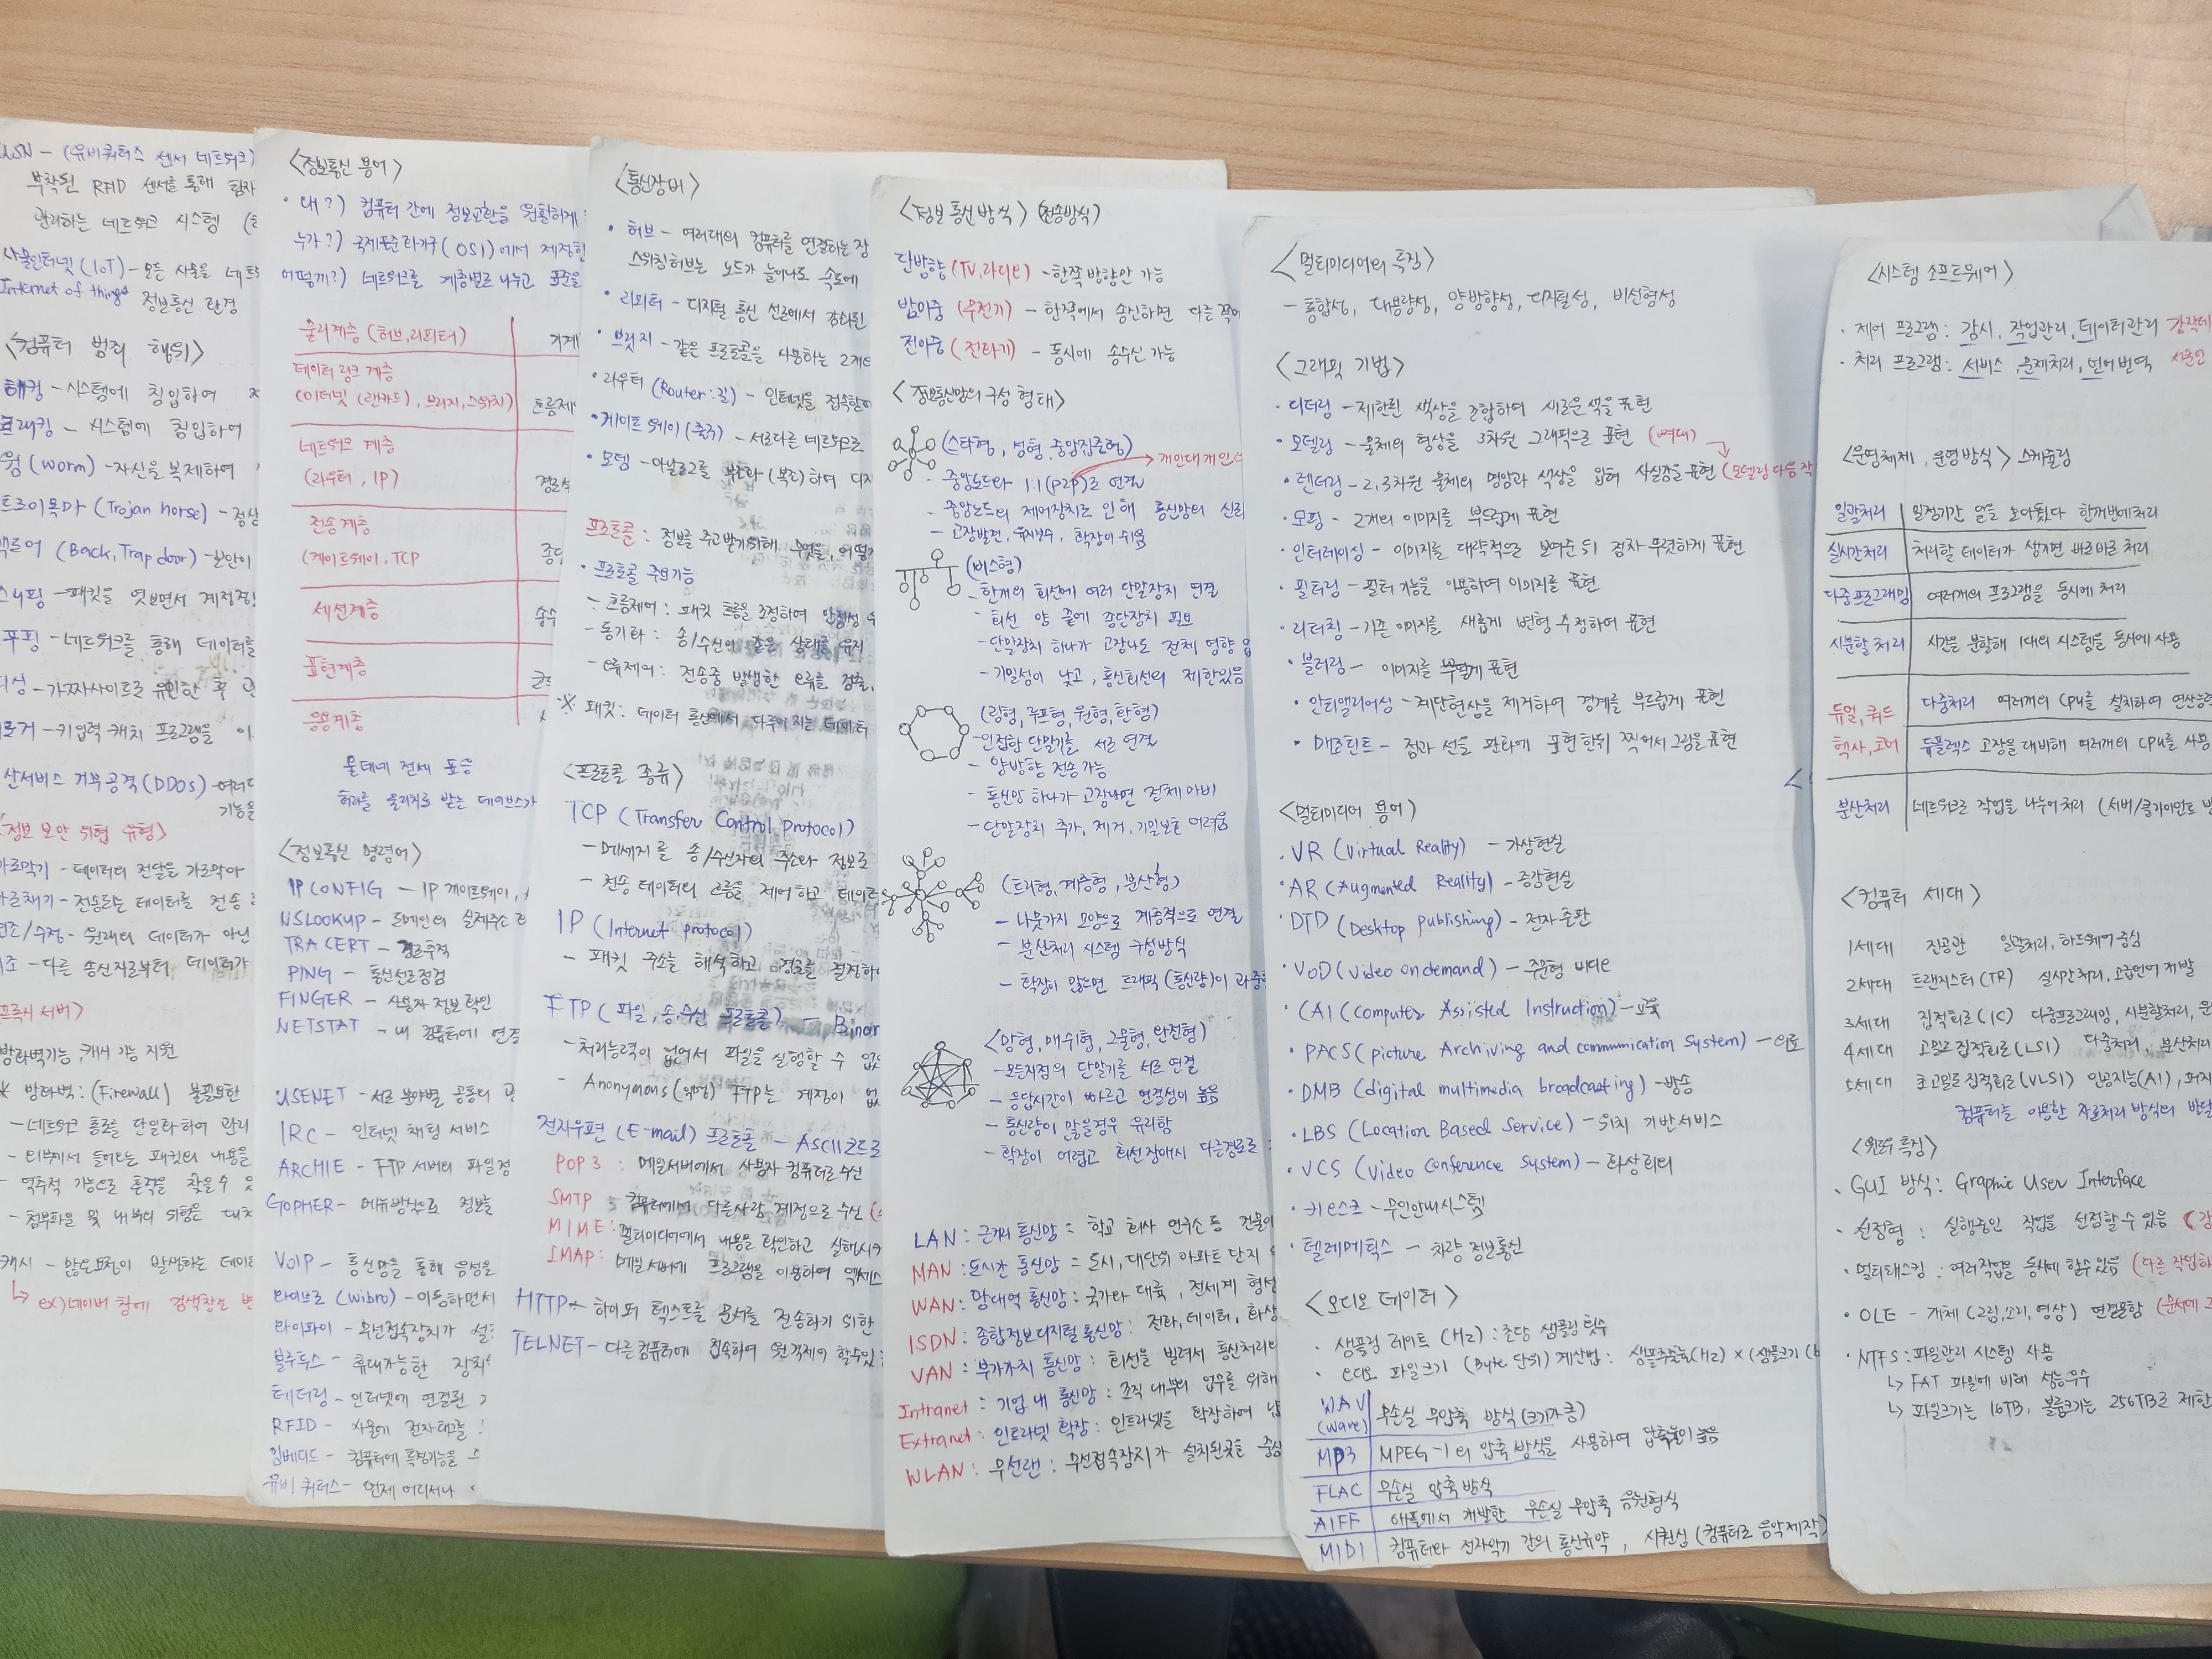 USN - (유비쿼터스 센서 네트워크)
부착된 RFID 센서를 통해 탐지
관리하는 네트워크 시스템
사물인터넷 (IoT) - 모든 사물을 네트워
Internet of things 정보통신 환경
<컴퓨터 범죄 행위>
해킹 - 시스템에 침입하여
크래킹 - 시스템에 침입하여
웜 (worm) - 자신을 복제하여
트로이목마 (Trojan horse) - 정상
백도어 (Back, Trap door) - 보안이
스니핑 - 패킷을 엿보면서 계정정
스푸핑 - 네트워크를 통해 데이터를
피싱 - 가짜사이트로 유인한 후
키로거 - 키입력 캐치 프로그램을 이
분산서비스 거부공격 (DDOS) - 여러대
기능을
<정보 보안 위협 유형>
가로막기 - 데이터의 전달을 가로막아
가로채기 - 전송되는 데이터를 전송
변조/수정 - 원래의 데이터가 아닌
위조 - 다른 송신자로부터 데이터가
<프록시 서버>
방화벽기능, 캐시 기능 지원
※ 방화벽 : (Firewall) 불필요한
- 네트워크 통로를 단일화하여 관리
- 외부에서 들어오는 패킷의 내용을
- 역추적 기능으로 흔적을 찾을수 있
- 첨부파일 및 내부의 위험은 대처
캐시 - 많은요청이 발생하는 데이터
↳ ex) 네이버 창에 검색창은 변
<정보통신 용어>
· 왜?) 컴퓨터 간에 정보교환을 원활하게
누가?) 국제표준화기구 (OSI) 에서 제정한
어떻게?) 네트워크를 계층별로 나누고 표준을
물리계층 (허브,리피터)
데이터 링크 계층
(이더넷 (랜카드), 브리지, 스위치) 흐름제
네트워크 계층
(라우터, IP)
전송계층
(게이트웨이, TCP
세션계층
표현계층
응용계층
물데네 전세 표응
허리를 물리치료 받는 데이브스가
<정보통신 명령어>
IPCONFIG - IP 게이트웨이,
NSLOOKUP - 도메인의 실제주소
TRACERT - 경로추적
PING - 통신선로점검
FINGER - 사용자 정보 확인
NETSTAT - 내 컴퓨터에 연결
USENET - 서로 분야별 공통의
IRC - 인터넷 채팅 서비스
ARCHIE - FTP 서버의 파일정
GOPHER - 메뉴방식으로 정보를
VoIP - 통신망을 통해 음성을
와이브로 (wibro) - 이동하면서
와이파이 - 무선접속장치가 설
블루투스 - 휴대가능한 장치
테더링 - 인터넷에 연결된
RFID - 사물에 전자태그를
임베디드 - 컴퓨터에 특정기능을
유비쿼터스 - 언제 어디서나
<통신장비>
· 허브 - 여러대의 컴퓨터를 연결하는 장
스위칭허브는 노드가 늘어나도 속도에
· 리피터 - 디지털 통신 선로에서 감쇠된
· 브릿지 - 같은 프로토콜을 사용하는 2개의
· 라우터 (Router:길) - 인터넷을 접속할때
· 게이트웨이 (출구) - 서로다른 네트워크로
· 모뎀 - 아날로그를 변환화 (복조) 하여 디지
프로토콜 : 정보를 주고받기위해 무엇을, 어떻게
· 프로토콜 주요기능
- 흐름제어 : 패킷 흐름을 조정하여 안정성
- 동기화 : 송/수신이 같은 상태를 유지
- 오류제어 : 전송중 발생한 오류를 검출,
※ 패킷 : 데이터 통신에서 다루어지는 데이터
<프로토콜 종류>
TCP (Transfer Control protocol)
- 메세지를 송/수신자의 주소와 정보로
- 전송 데이터의 흐름을 제어하고 데이터
IP (Internet protocol)
- 패킷 주소를 해석하고 경로를 결정하여
FTP (파일, 송·수신 프로토콜) - Binar
- 처리능력이 없어서 파일을 실행할 수 없
- Anonymous (익명) FTP는 계정이 없
전자우편 (E-mail) 프로토콜 - ASCII코드로
POP3 : 메일서버에서 사용자 컴퓨터로 수신
SMTP : 컴퓨터에서 다른사람 계정으로 수신
MIME : 멀티미디어에서 내용을 확인하고 실행시켜
IMAP : 메일서버에 프로그램을 이용하여 엑세스
HTTP - 하이퍼 텍스트를 문서를 전송하기 위한
TELNET - 다른 컴퓨터에 접속하여 원격제어 할수있
<정보 통신방식> (전송방식)
단방향 (TV,라디오) - 한쪽 방향만 가능
반이중 (무전기) - 한쪽에서 송신하면 다른 쪽에
전이중 (전화기) - 동시에 송수신 가능
<정보통신망의 구성 형태>
(스타형, 성형, 중앙집중형)
- 중앙노드와 1:1 (P2P)로 연결 → 개인대개인
- 중앙노드의 제어장치로 인해 통신망의 신뢰
- 고장발견, 유지보수, 확장이 쉬움
(버스형)
- 한개의 회선에 여러 단말장치 연결
- 회선 양 끝에 종단장치 필요
- 단말장치 하나가 고장나도 전체 영향
- 기밀성이 낮고, 통신회선의 제한있음
(링형, 루프형, 원형, 환형)
- 인접한 단말기를 서로 연결
- 양방향 전송 가능
- 통신망 하나가 고장나면 전체 마비
- 단말장치 추가, 제거, 기밀보호 어려움
(트리형, 계층형, 분산형)
- 나뭇가지 모양으로 계층적으로 연결
- 분산처리 시스템 구성방식
- 확장이 많으면 트래픽 (통신량)이 과중
<망형, 매쉬형, 그물형, 완전형)
- 모든지점의 단말기를 서로 연결
- 응답시간이 빠르고 연결성이 높음
- 통신량이 많을경우 유리함
- 확장이 어렵고 회선장애시 다른경로로
LAN : 근거리 통신망 = 학교 회사 연구소 등 건물이
MAN : 도시간 통신망 = 도시, 대단위 아파트 단지
WAN : 광대역 통신망 : 국가와 대륙, 전세계 형성
ISDN : 종합정보디지털 통신망 : 전화, 데이터, 화상
VAN : 부가가치 통신망 : 회선을 빌려서 통신처리의
Intranet : 기업 내 통신망 : 조직 내부의 업무를 위해
Extranet : 인트라넷 확장 : 인트라넷을 확장하여
WLAN : 무선랜 : 무선접속장치가 설치된곳을 중심
<멀티미디어의 특징>
- 통합성, 대용량성, 양방향성, 디지털성, 비선형성
<그래픽 기법>
· 디더링 - 제한된 색상을 조합하여 새로운색을 표현
· 모델링 - 물체의 형상을 3차원 그래픽으로 표현 (뼈대)
· 렌더링 - 2,3차원 물체의 명암과 색상을 입혀 사실감을 표현 (모델링 다음 작
· 모핑 - 2개의 이미지를 부드럽게 표현
· 인터레이싱 - 이미지를 대략적으로 보여준 뒤 점차 뚜렷하게 표현
· 필터링 - 필터 기능을 이용하여 이미지를 표현
· 리터칭 - 기존 이미지를 새롭게 변형 수정하여 표현
· 블러링 - 이미지를 뿌옇게 표현
· 안티앨리어싱 - 계단현상을 제거하여 경계를 부드럽게 표현
· 메조틴트 - 점과 선을 판화에 표현한뒤 찍어서 그림을 표현
<멀티미디어 용어>
· VR (Virtual Reality) - 가상현실
· AR (Augmented Reality) - 증강현실
· DTD (Desktop publishing) - 전자출판
· VOD (video on demand) - 주문형 비디오
· CAI (Computer Assisted Instruction) - 교육
· PACS (picture Archiving and communication System) - 의료
· DMB (digital multimedia broadcasting) - 방송
· LBS (Location Based Service) - 위치 기반서비스
· VCS (Video Conference System) - 화상회의
· 키오스크 - 무인안내시스템
· 텔레메틱스 - 차량 정보통신
<오디오 데이터>
· 샘플링 레이트 (Hz) : 초당 샘플링 횟수
· 오디오 파일크기 (Byte 단위) 계산법 : 샘플주출율(Hz) × (샘플크기 (b
WAV (wave) 무손실 무압축 방식 (크기가큼)
MP3 MPEG-1의 압축 방식을 사용하여 압축율이 높음
FLAC 무손실 압축 방식
AIFF 애플에서 개발한 무손실 무압축 음원형식
MIDI 컴퓨터와 전자악기 간의 통신규약, 시퀀싱 (컴퓨터로 음악제작)
<시스템 소프트웨어>
· 제어 프로그램 : 감시, 작업관리, 데이터관리 감작데
· 처리 프로그램 : 서비스, 문제처리, 언어번역 서문언
<운영체제, 운영방식> 스케줄링
일괄처리 일정기간 일을 모아뒀다 한꺼번에처리
실시간처리 처리할 데이터가 생기면 바로바로 처리
다중프로그래밍 여러개의 프로그램을 동시에 처리
시분할 처리 시간을 분할해 1대의 시스템을 동시에 사용
듀얼, 쿼드 다중처리 여러개의 CPU를 설치하여 연산능력
헥사, 코어 듀플렉스 고장을 대비해 여러개의 CPU를 사용
분산처리 네트워크로 작업을 나누어 처리 (서버/클라이언트
<컴퓨터 세대>
1세대 진공관 일괄처리, 하드웨어 중심
2세대 트랜지스터 (TR) 실시간처리, 고급언어 개발
3세대 집적회로 (IC) 다중프로그래밍, 시분할처리, 운
4세대 고밀도 집적회로 (LSI) 다중처리, 분산처리
5세대 초고밀도 집적회로 (VLSI) 인공지능 (AI), 퍼지
컴퓨터를 이용한 자료처리 방식의 발달
<윈도우 특징>
· GUI 방식 : Graphic User Interface
· 선점형 : 실행중인 작업을 선점할 수 있음
· 멀티태스킹 : 여러작업을 동시에 할수있음 (다른 작업하
· OLE - 개체 (그림,소리,영상) 연결포함 (문서에
· NTFS : 파일관리 시스템 사용
↳ FAT 파일에 비해 성능우수
↳ 파일크기는 16TB, 볼륨크기는 256TB로 제한